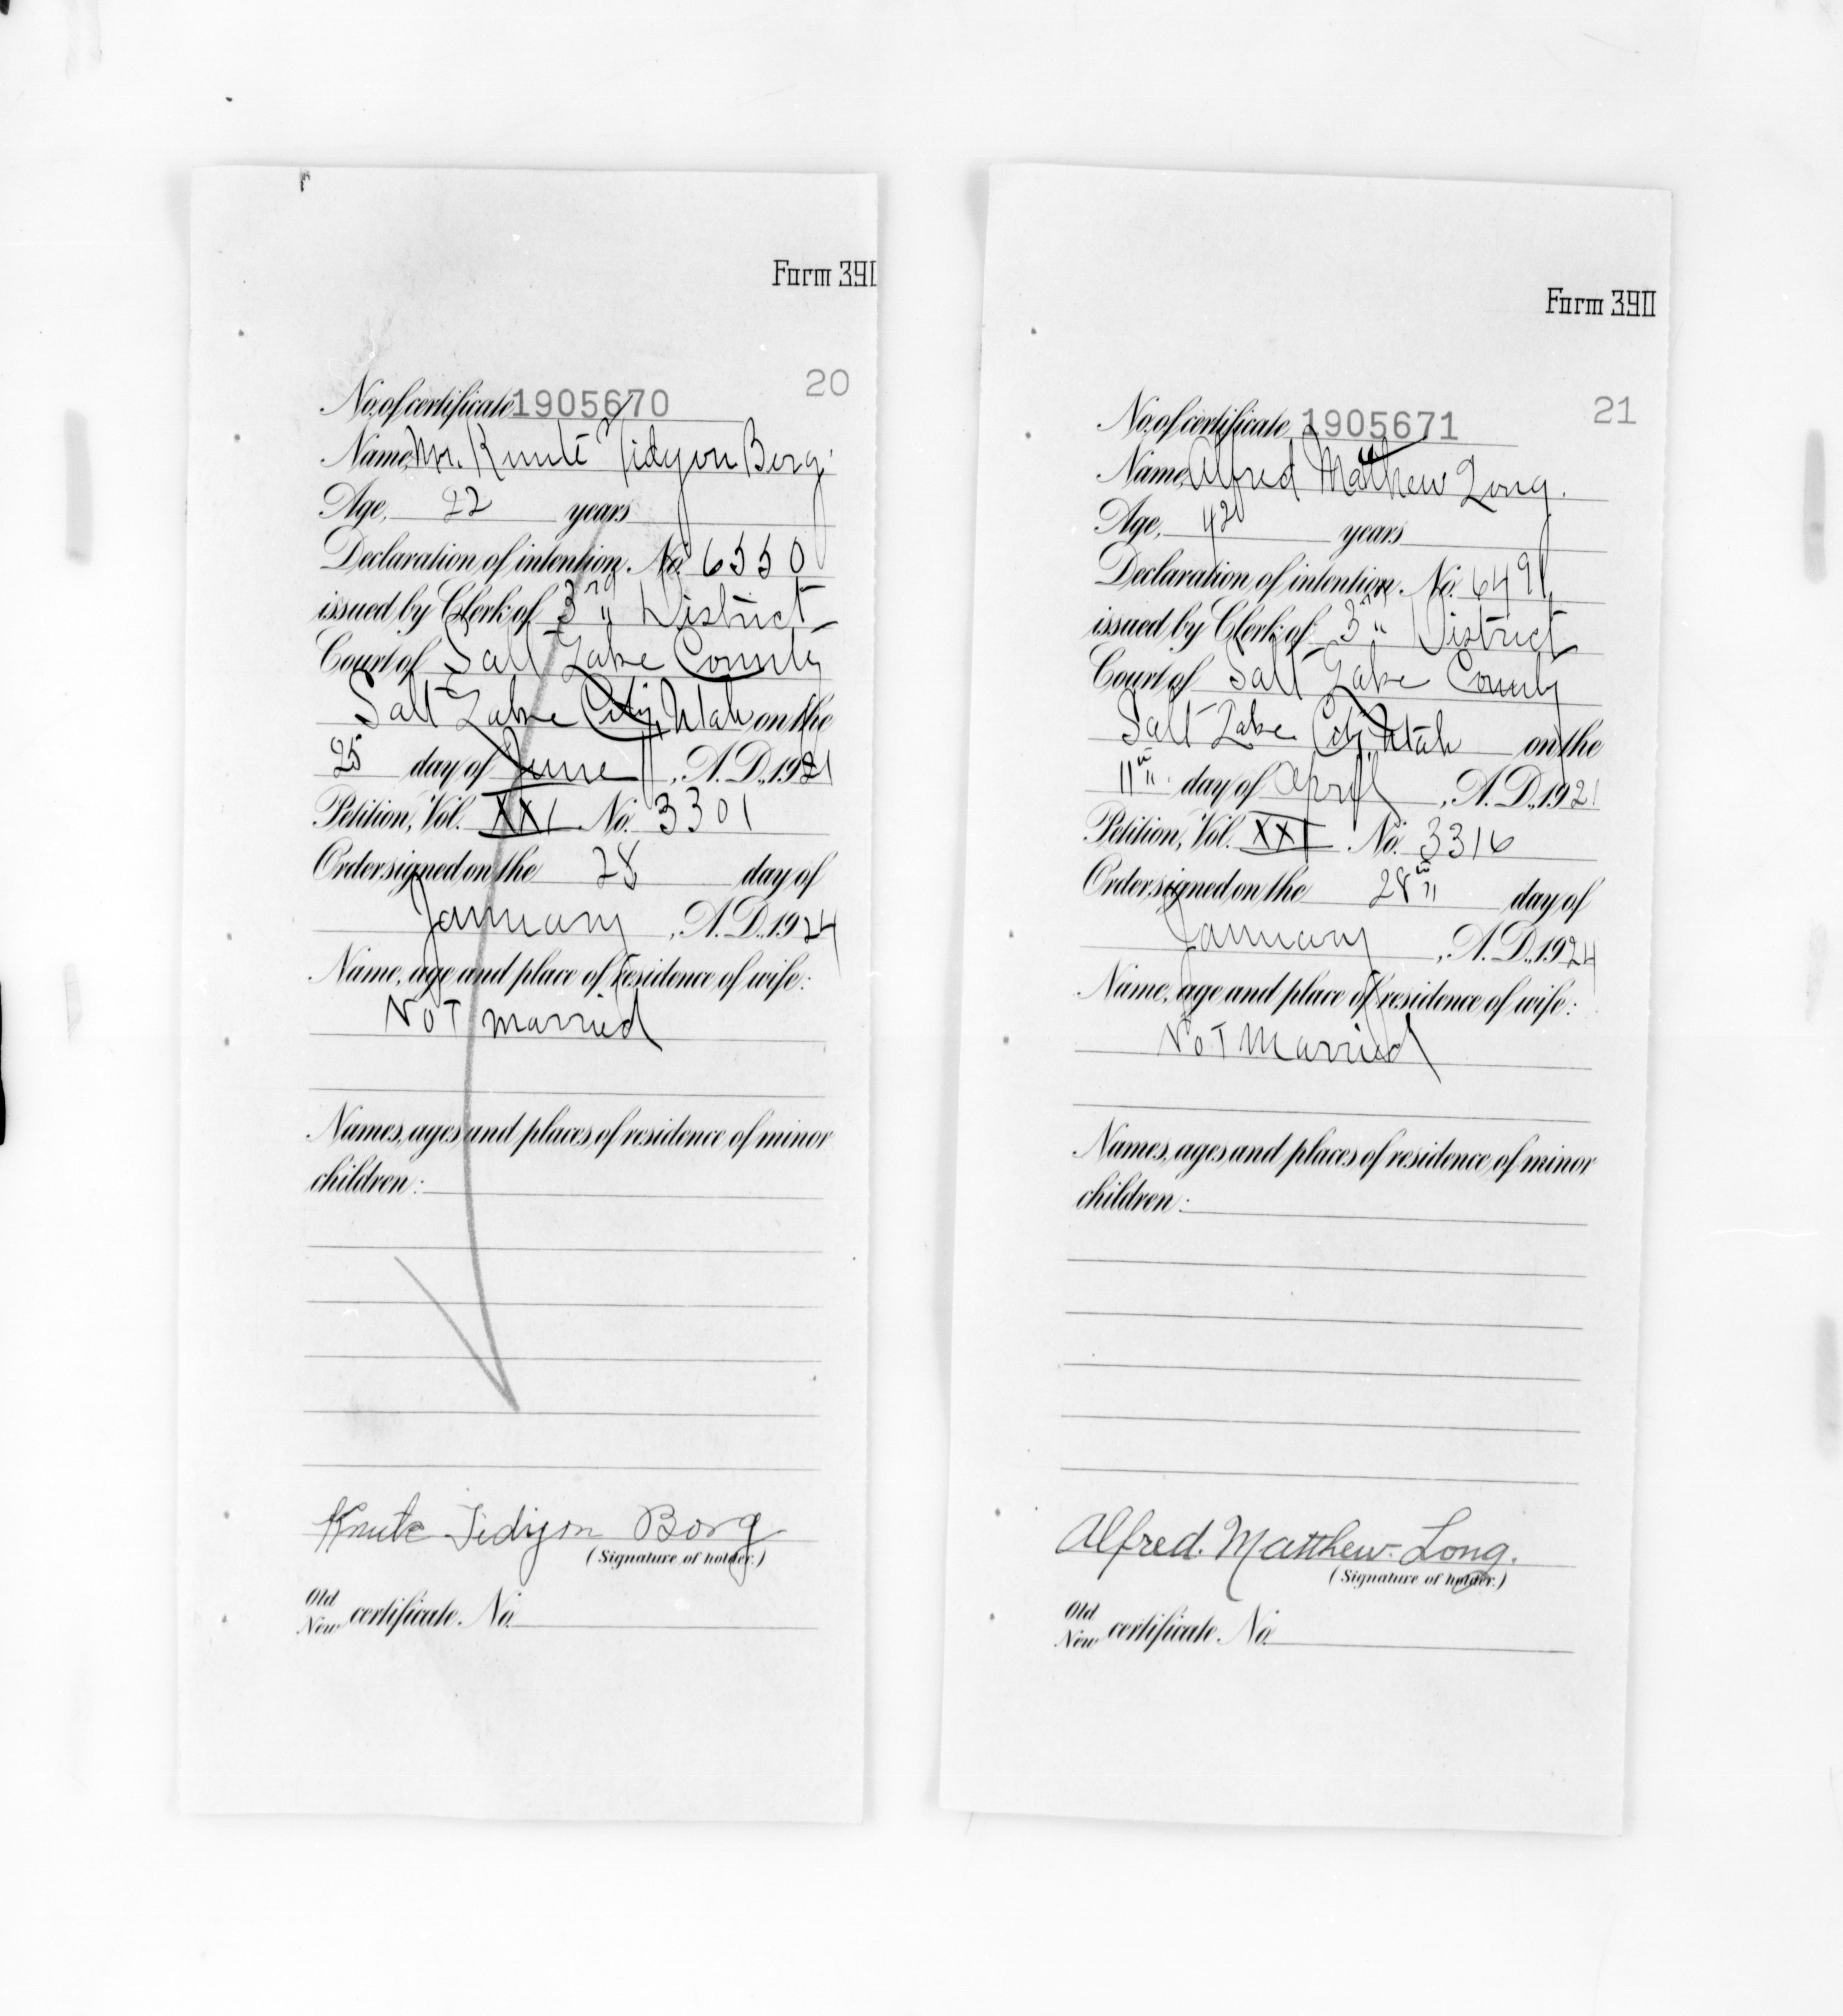 Form 390
20
No. of certificate 1905670
Name, Mr. Knute Tidyon Borg.
Age, 22 years
Declaration of intention. No. 6550
issued by Clerk of 3rd District
Court of Salt Lake County
Salt Lake City, Utah on the
25 day of June, A.D., 1921
Petition, Vol. XXI No. 3301
Order signed on the 28 day of
January, A.D., 1924
Name, age and place of residence of wife:
Not married
Names, ages and places of residence of minor
children:
Knute Tidyon Borg
(Signature of holder.)
Old
New certificate. No.
Form 390
21
No. of certificate 1905671
Name, Alfred Mathew Long.
Age, 42 years
Declaration of intention. No. 6491
issued by Clerk of 3rd District
Court of Salt Lake County
Salt Lake City, Utah on the
11th day of April, A.D., 1921
Petition, Vol. XXI No. 3316
Order signed on the 28th day of
January, A.D., 1924
Name, age and place of residence of wife:
Not Married
Names, ages and places of residence of minor
children:
Alfred. Matthew. Long.
(Signature of holder.)
Old
New certificate. No.